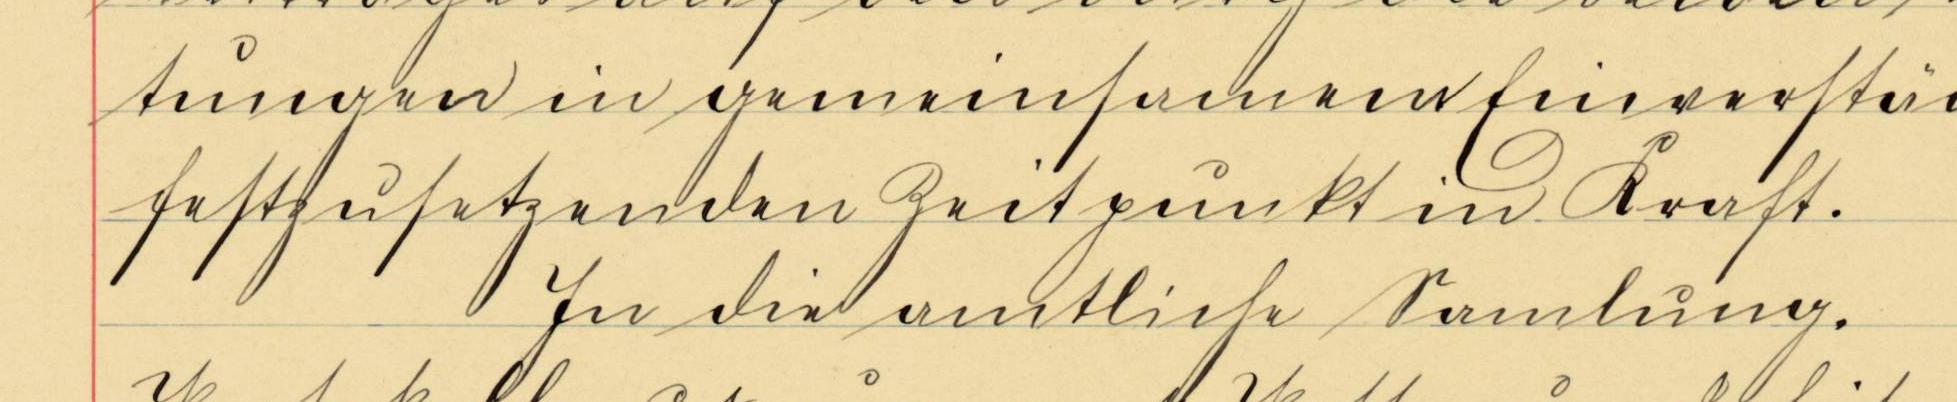 tungen in gemeinsamem Einverstän
festzusetzenden Zeitpunkt in Kraft.
In die amtliche Samlung.